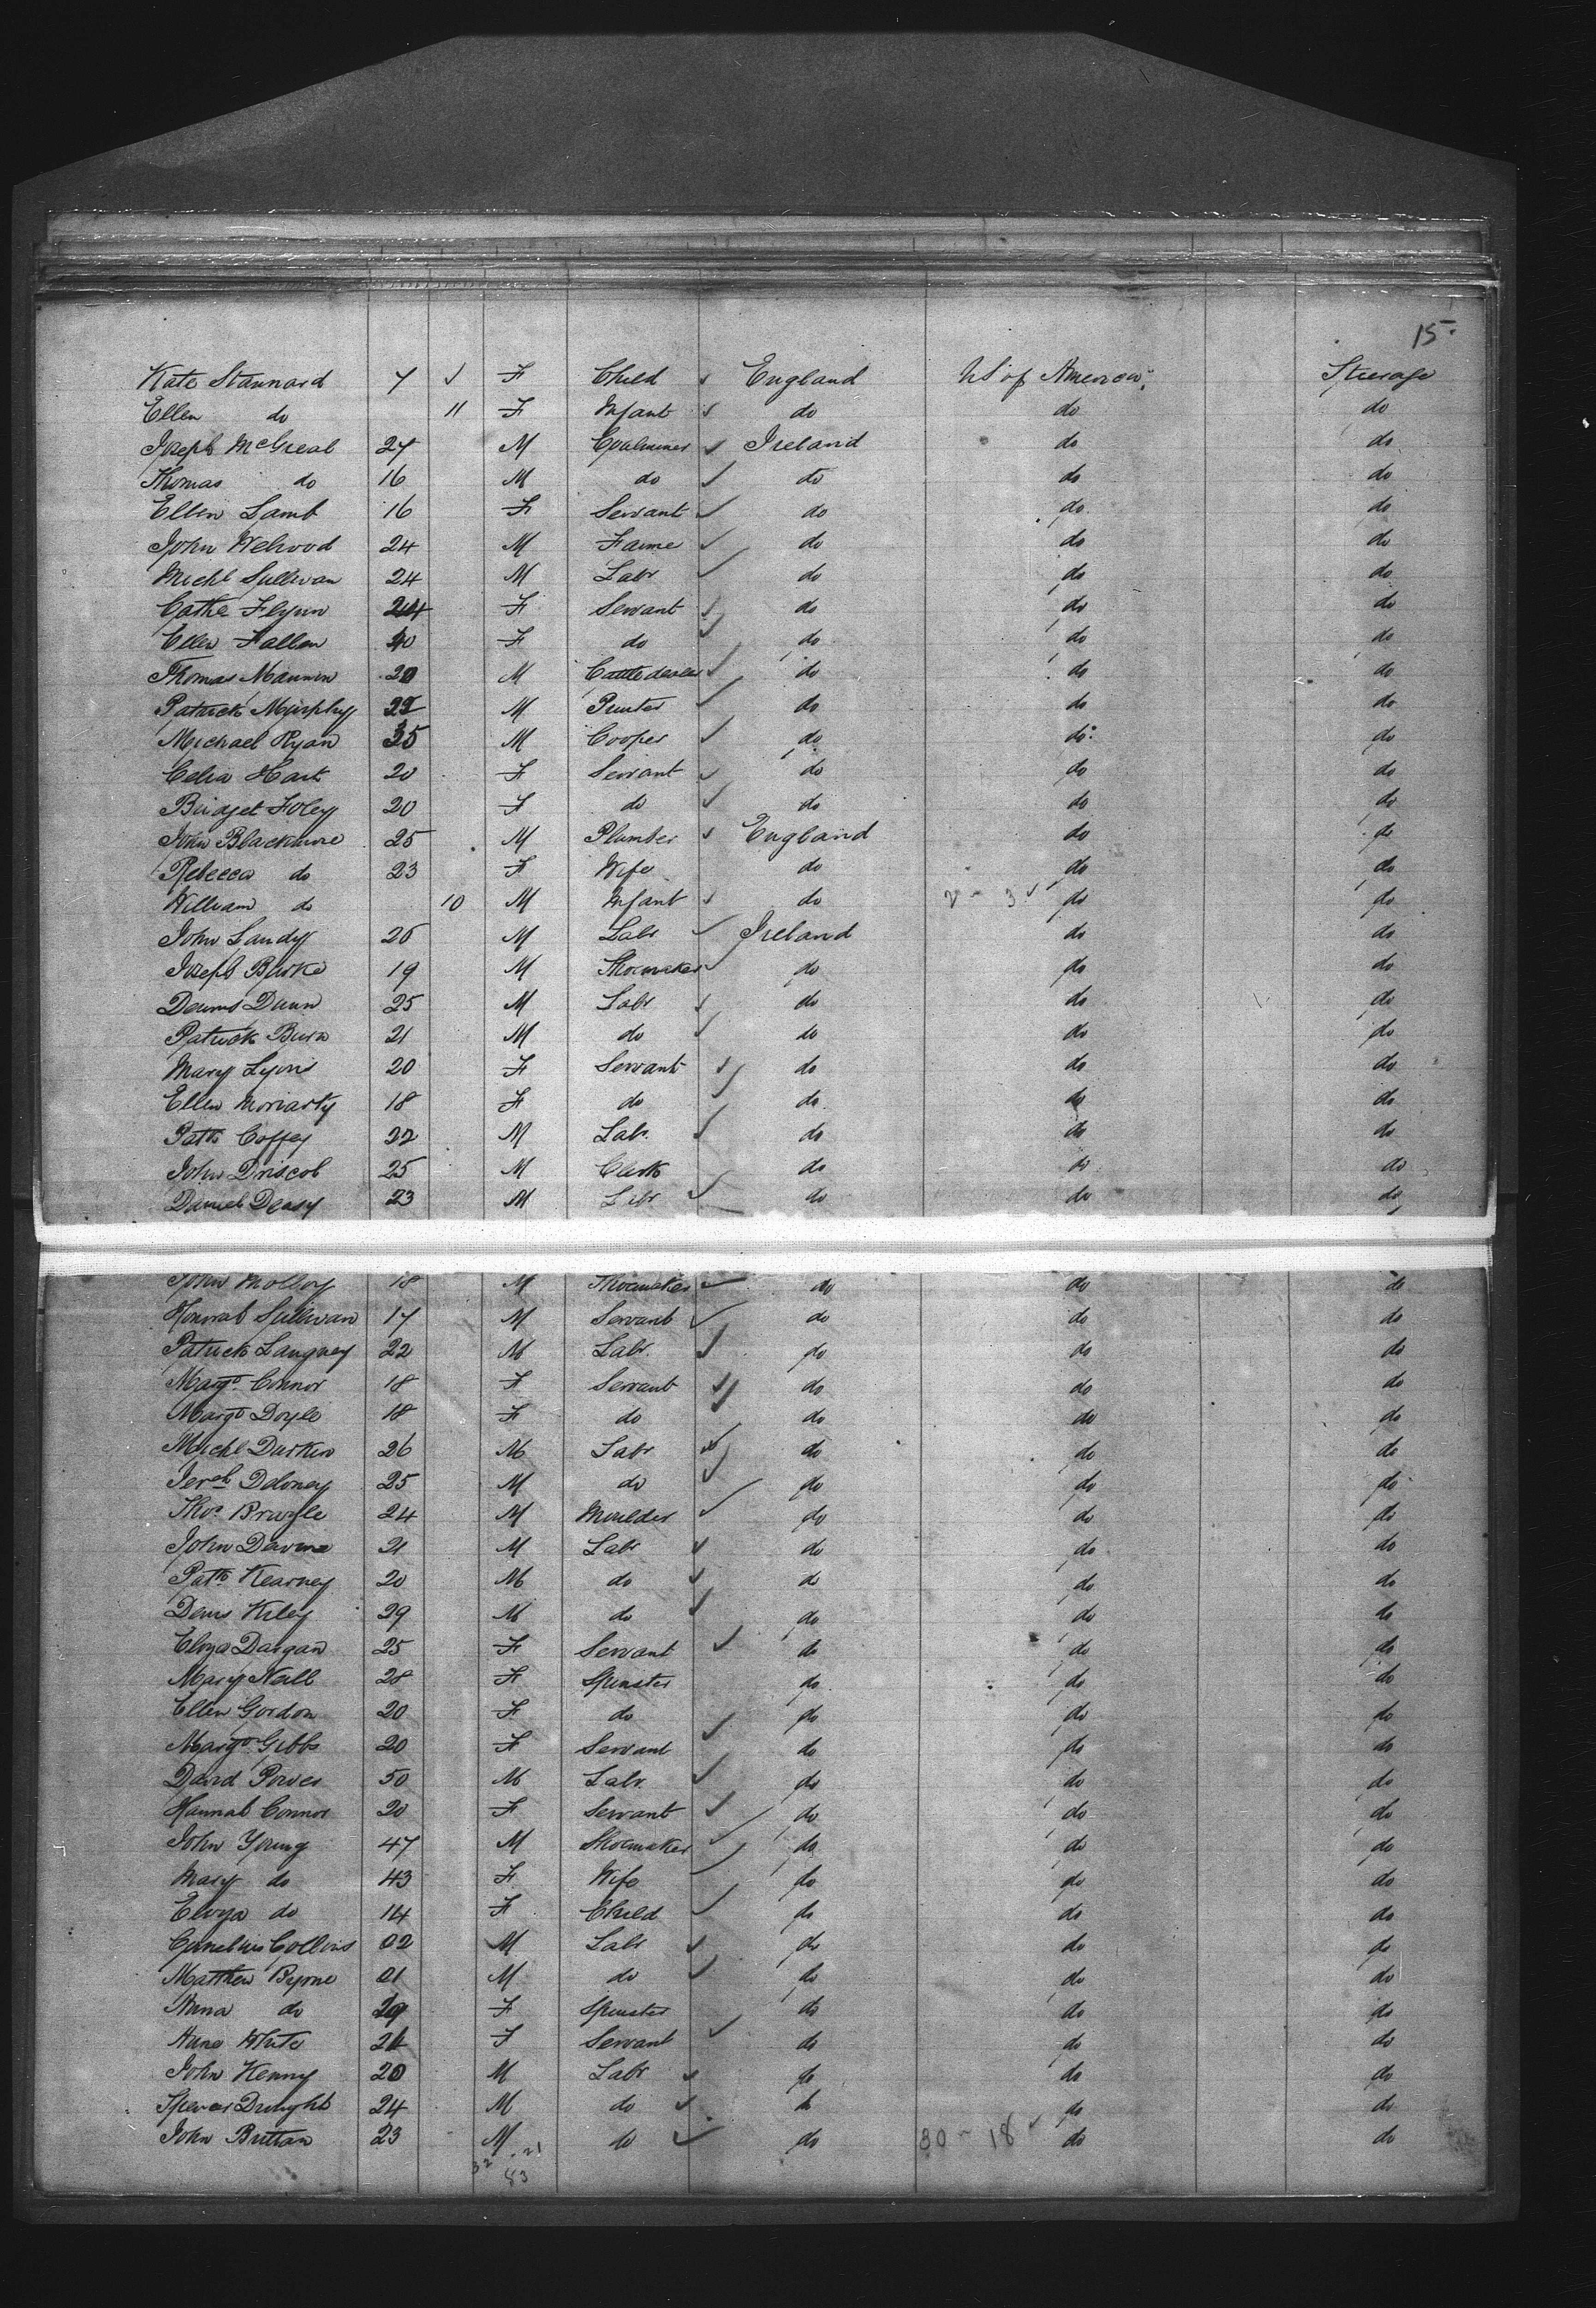 15.
Kate Stannard 7 F Child England US of America Steerage
Ellen do 11 F Infant do do do
Joseph McGreal 27 M Coalminer Ireland do do
Thomas do 16 M do do do do
Ellen Lamb 16 F Servant do do do
John Welwood 24 M Farme do do do
Michl Sullivan 24 M Labr do do do
Cathe Flynn 24 F Servant do do do
Ellen Fallen 40 F do do do do
Thomas Mannin 20 M Cattledealer do do do
Patrick Murphy M Printer do do do
Michael Ryan 35 M Cooper do do do
Celia Hart 20 F Servant do do do
Bridget Foley 20 F do do do do
John Blackmore 25 M Plumber England do do
Rebecca do 23 F Wife do do do
William do 10 M Infant do 2 - 3 do do
John Landy 26 M Labr Ireland do do
Joseph Burke 19 M Shoemaker do do do
Dennis Dunn 25 M Labr do do do
Patrick Burn 21 M do do do do
Mary Lyons 20 F Servant do do do
Ellen Moriarty 18 F do do do do
Patk Coffey 22 M Labr. do do do
John Driscol 25 M Clerk do do do
Daniel Deasy 23 M Labr do do do
John Molloy 18 M Shoemaker do do do
Honorah Sullivan 17 M Servant do do do
Patrick Langney 22 M Labr. do do do
Margt. Connor 18 F Servant do do do
Margt Doyle 18 F do do do do
Michl Durkin 26 M Labr do do do
Jereh Deloney 25 M do do do do
Thos 24 M Moulder do do do
John Devine 21 M Labr do do do
Patk. Kearney 20 M do do do do
Denis Kiley 29 M do do do do
Eliza Dargan 25 F Servant do do do
Mary Neill 28 F Spinster do do do
Ellen Gordon 20 F do do do do
Margt. Gibbs 20 F Servant do do do
David Power 50 M Labr. do do do
Hannah Connor 20 F Servant do do do
John Young 47 M Shoemaker do do do
Mary do 43 F Wife do do do
Eliza do 14 F Child do do do
Cornelius Collins 02 M Labr do do do
Matthew Byrne 21 M do do do do
Anna do 29 F Spinster do do do
Anne White 21 F Servant do do do
John Kenny 20 M Labr do do do
24 M do do do do
John Brittan 23 M do do 30 - 18 do do
32 . 21
53